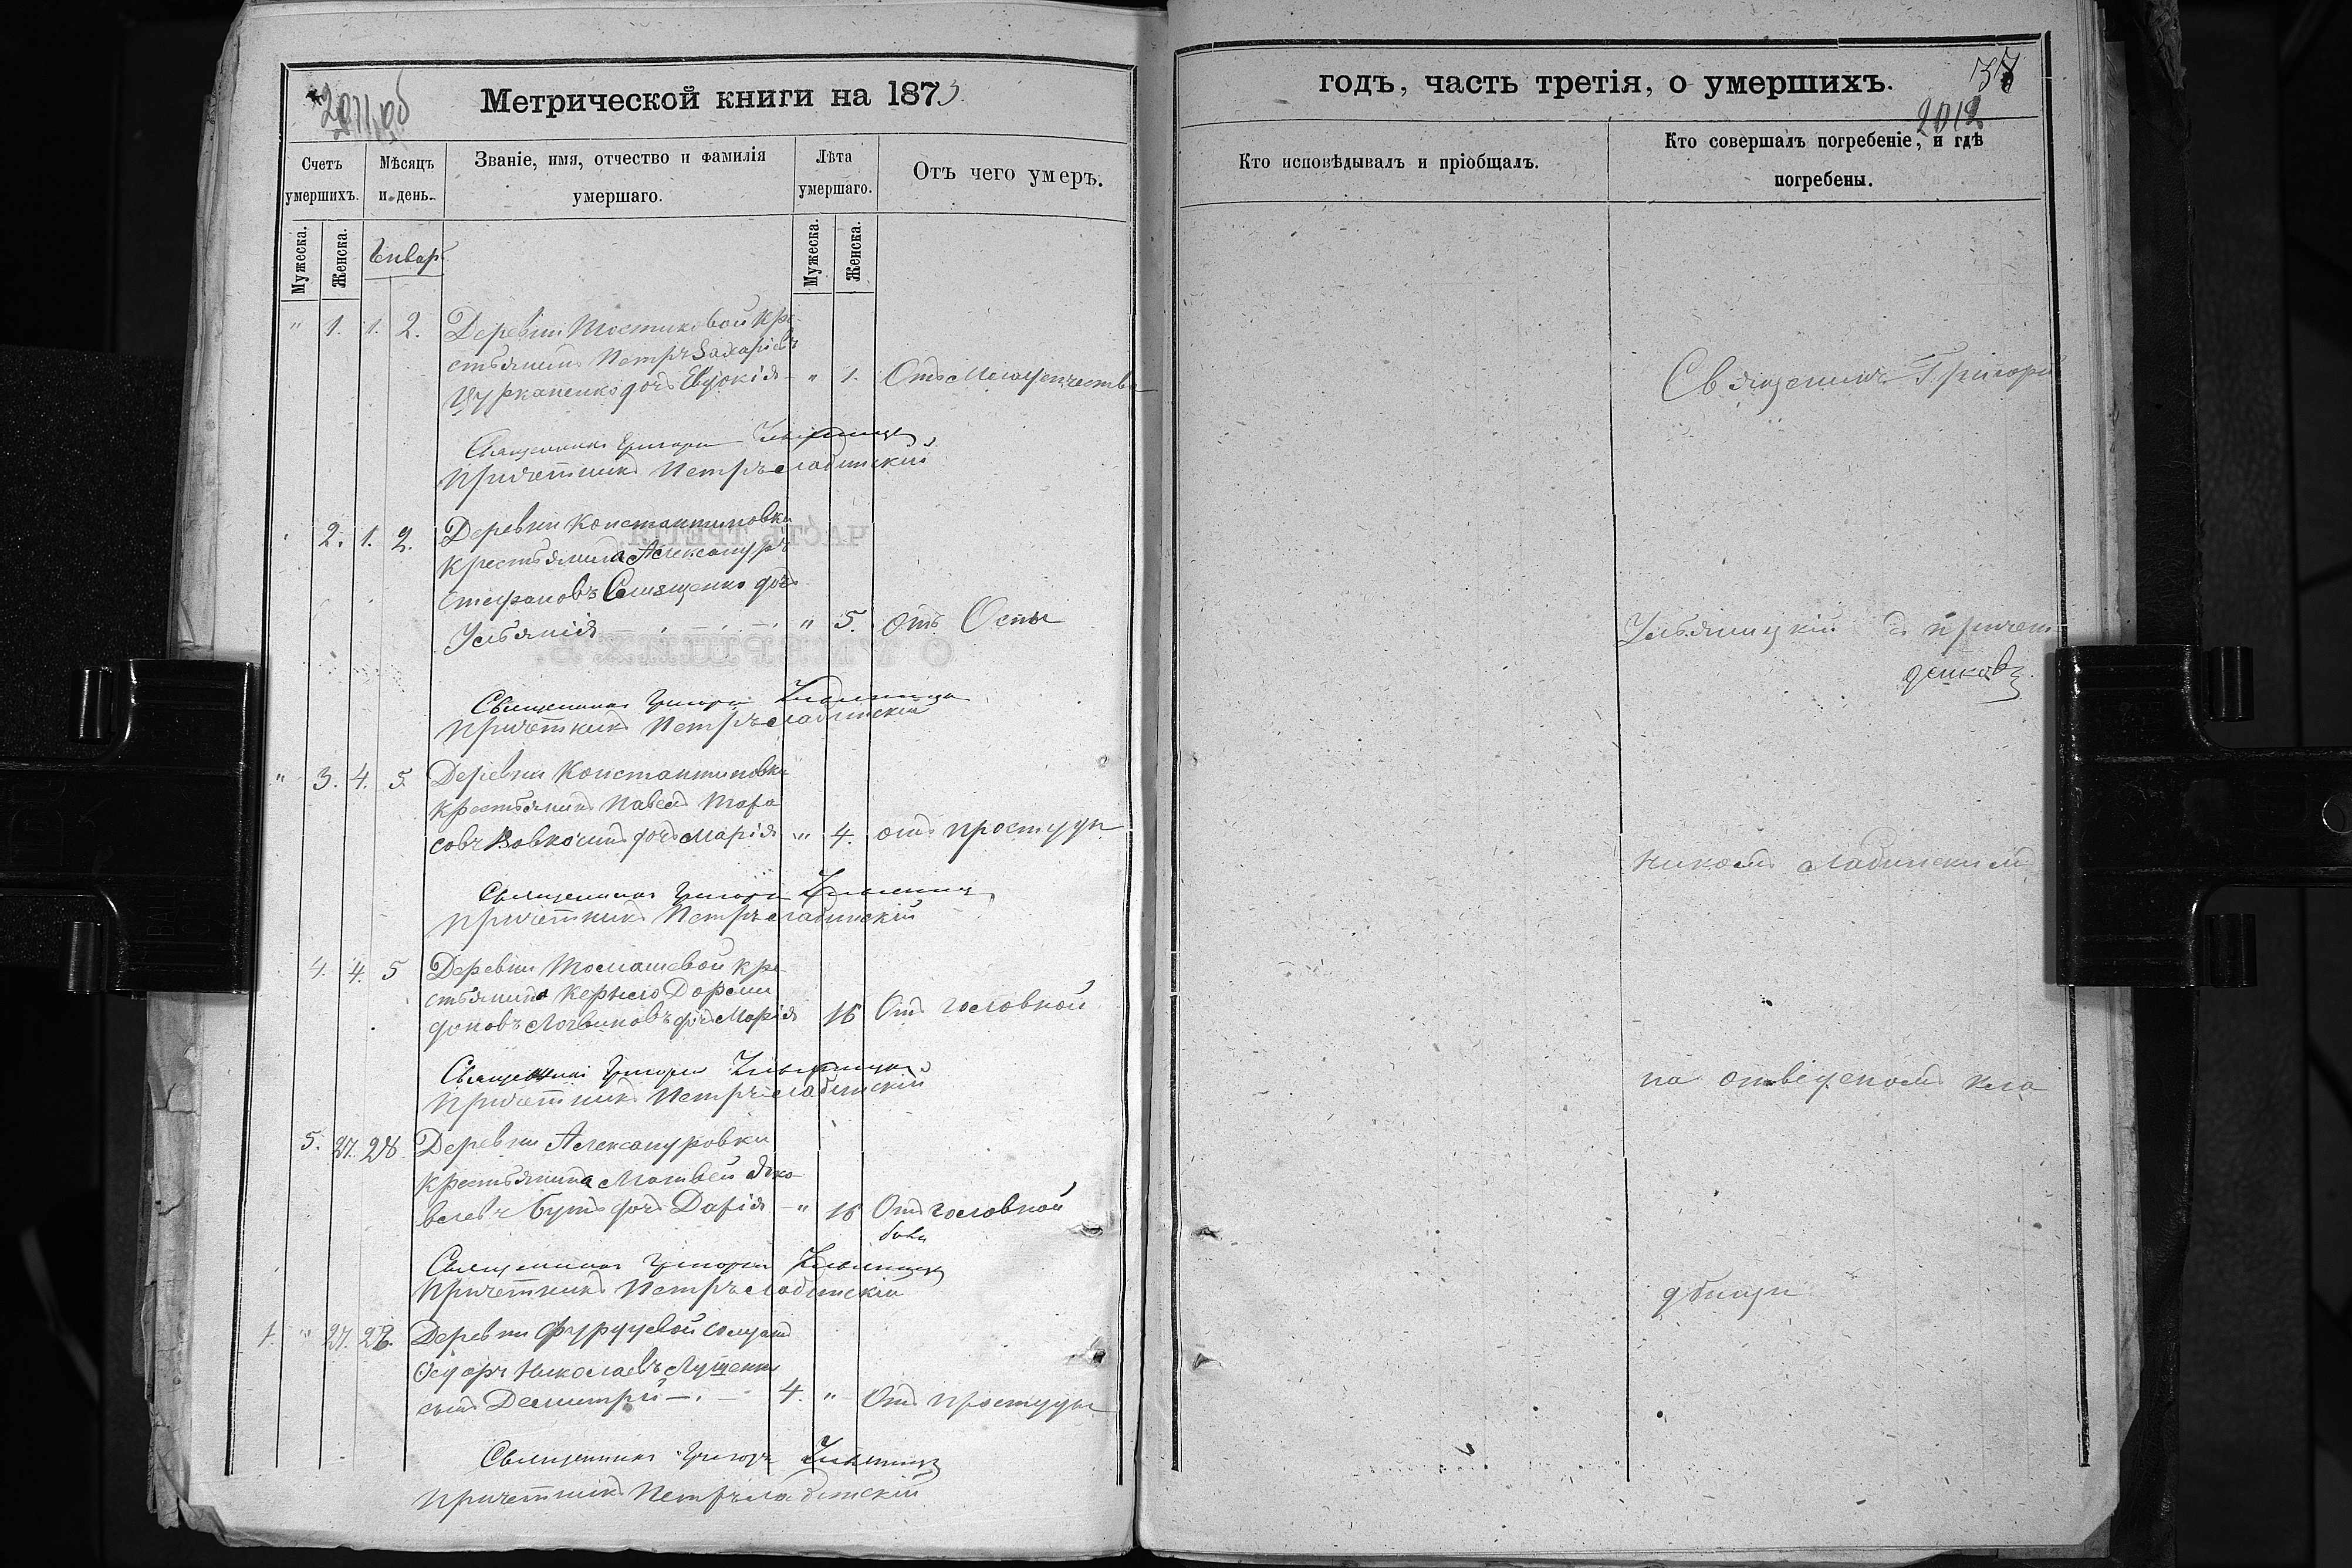 2011 об
Метрической книги на 1873
Счетъ умершихъ.
Мѣсяцъ и день.
Званіе, имя, отчество и фамилія умершаго.
Лѣта умершаго.
Отъ чего умеръ.
Мужеска.
Женска.
Январ
Мужеска.
Женска.
" 1. 1. 2. Деревни Мостиковой кре-
стьянинъ Петръ Захаріевъ
Цурканенко дочь Евдокія - " 1. Отъ Младенчества
Священникъ Григорій
Причетникъ Петръ Ладинскій
2. 1. 2. Деревни Константиновки
Крестьянина Александръ
Стефановъ дочь
Ульянія " 5. Отъ Оспы
Священникъ Григорій
Причетникъ Петръ Ладинскій
" 3. 4. 5 Деревни Константиновки
Крестьянинъ Павелъ Тара
совъ Вовкочинъ дочь Марія " 4. отъ простуды
Священникъ Григорій
Причетникъ Петръ Ладинскій
4. 4. 5 Деревни кре-
стьянина Дорми
доновъ Логвиновъ дочь Марія 16 Отъ головной
Священникъ Григорій
Причетникъ Петръ Ладинскій
5. 27. 28 Деревни Александровки
Крестьянина Матвей Яко-
влевъ Бутъ дочь Дарія - " 16 Отъ головной
боли
Священникъ Григорій
Причетникъ Петръ Ладинскій
1. " 27. 28. Деревни солдатъ
Федоръ Николаевъ Лущенко
сынъ Димитрій 4. " Отъ простуды
Священникъ Григорій
Причетникъ Петръ Ладинскій
годъ, часть третія, о умершихъ.
37
2012
Кто исповѣдывалъ и пріобщалъ.
Кто совершалъ погребеніе, и гдѣ погребены.
Священникъ Григорій
Ульяницкій съ причет
никомъ Ладинскимъ
на отведеномъ кла
дбищи